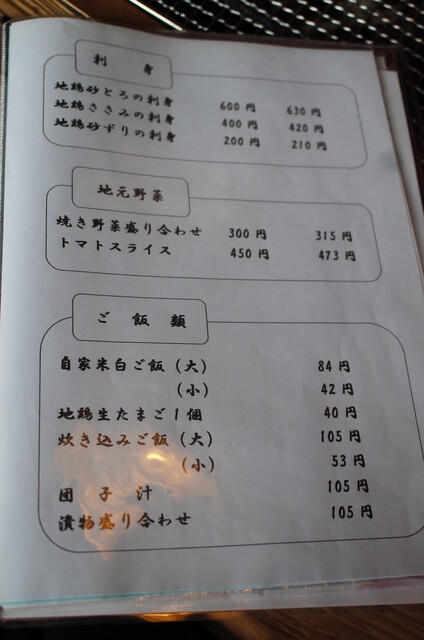 刺身
地鶏砂とろの刺身 600円 630円
地鶏ささみの刺身 400円 420円
地鶏砂ずりの刺身 200円 210円
地元野菜
焼き野菜盛り合わせ 300円 315円
トマトスライス 450円 473円
ご飯類
自家米白ご飯(大) 84円
(小) 42円
地鶏生たまご1個 40円
炊き込みご飯(大) 105円
(小) 53円
団子汁 105円
漬物盛り合わせ 105円